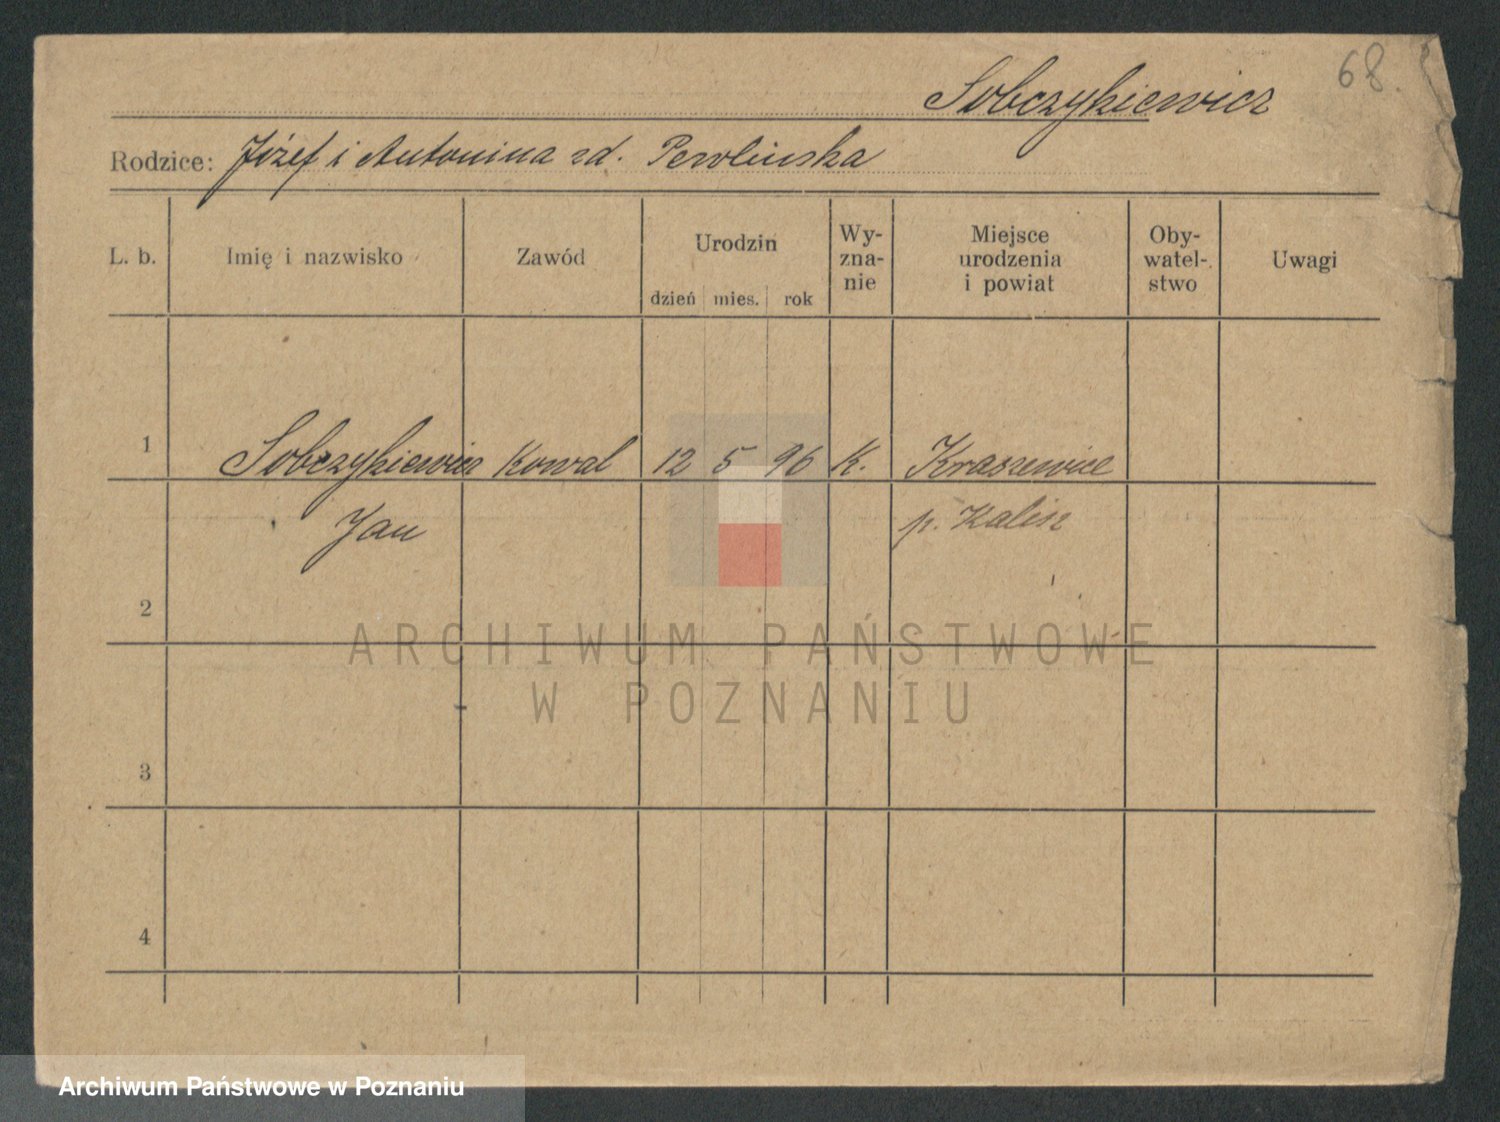 68.
Sobczykiewicz
Rodzice: Józef i Antonina zd.
L. b. Imię i nazwisko Zawód Urodzin dzień mies. rok Wy-zna-nie Miejsce urodzenia i powiat Oby-watel-stwo Uwagi
1 Sobczykiewicz Kowal 12 5 96 K. Kraszewice
Jan p. Kalisz
2
ARCHIWUM PAŃSTWOWE
W POZNANIU
3
4
Archiwum Państwowe w Poznaniu